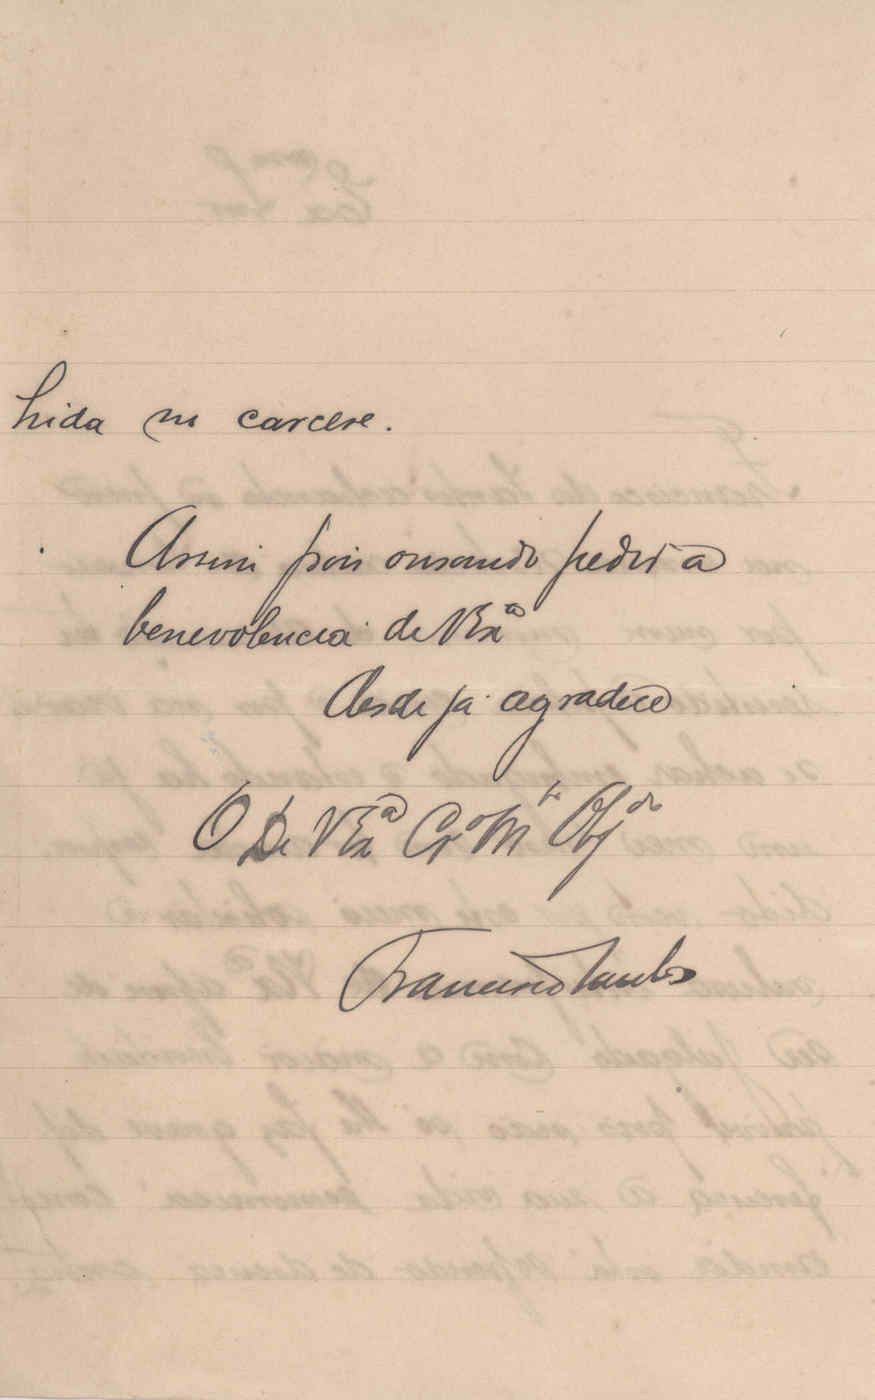 hida no carcere.
Assim pois ousando pedir a
benevolencia de VExª
desde já agradece
O De VExª Crº Mtº Obgdº
Francisco Santos